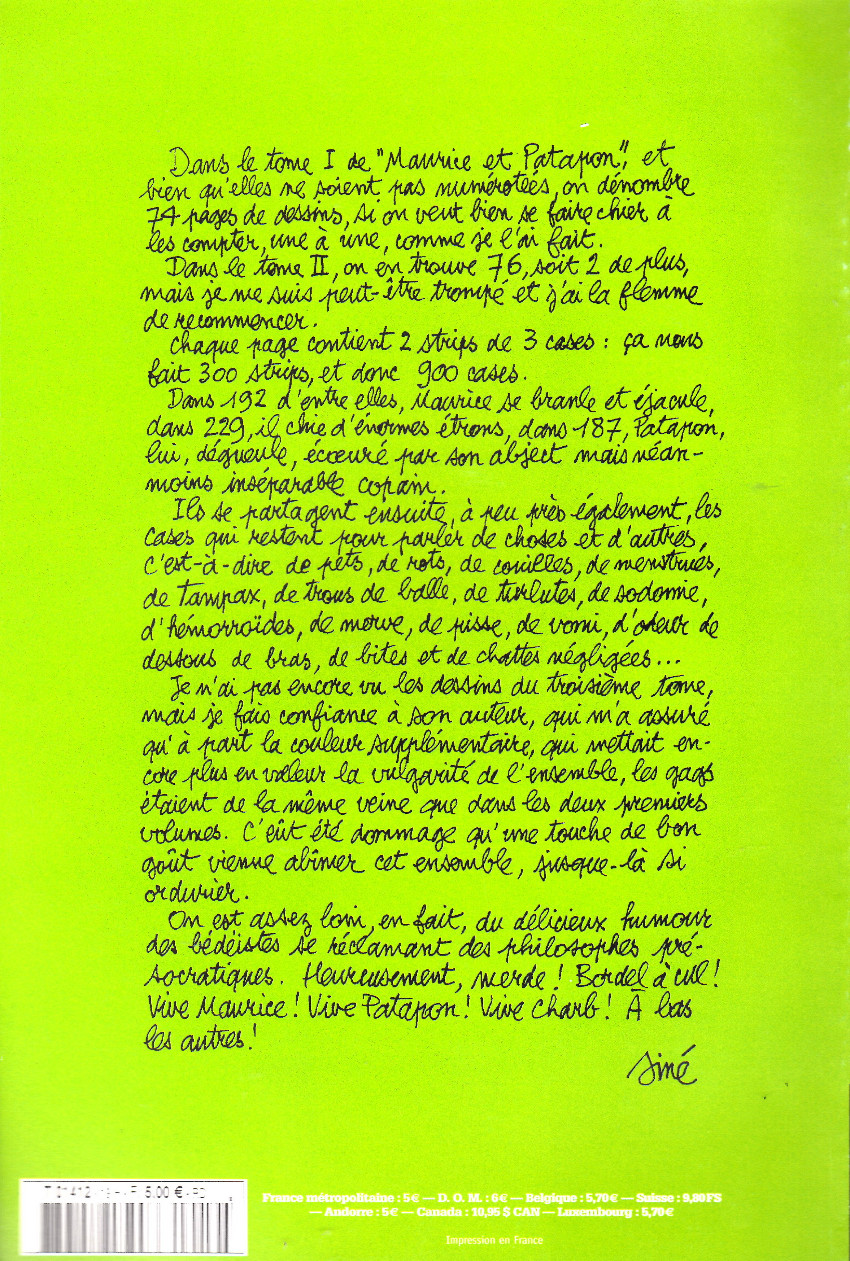 Dans le tome I de "Maurice et Patapon", et
bien qu'elles ne soient pas numérotées, on dénombre
74 pages de dessins, si on veut bien se faire chier à
les compter, une à une, comme je l'ai fait.
Dans le tome II, on en trouve 76, soit 2 de plus,
mais je me suis peut-être trompé et j'ai la flemme
de recommencer.
Chaque page contient 2 strips de 3 cases : ça nous
fait 300 strips, et donc 900 cases.
Dans 192 d'entre elles, Maurice se branle et éjacule,
dans 229, il chie d'énormes étrons, dans 187, Patapon,
lui, dégueule, écœuré par son abject mais néan-
moins inséparable copain.
Ils se partagent ensuite, à peu près également, les
cases qui restent pour parler de choses et d'autres,
c'est-à-dire de pets, de rots, de couilles, de menstrues,
de Tampax, de trous de balle, de turlutes, de sodomie,
d'hémorroïdes, de morve, de pisse, de vomi, d'odeur de
dessous de bras, de bites et de chattes négligées...
Je n'ai pas encore vu les dessins du troisième tome,
mais je fais confiance à son auteur, qui m'a assuré
qu'à part la couleur supplémentaire, qui mettait en-
core plus en valeur la vulgarité de l'ensemble, les gags
étaient de la même veine que dans les deux premiers
volumes. C'eût été dommage qu'une touche de bon
goût vienne abîmer cet ensemble, jusque-là si
ordurier.
On est assez loin, en fait, du délicieux humour
des bédéistes se réclamant des philosophes pré-
socratiques. Heureusement, merde ! Bordel à cul !
Vive Maurice ! Vive Patapon ! Vive Charb ! À bas
les autres !
Siné
5,00 €
France métropolitaine : 5 € — D. O. M. : 6 € — Belgique : 5,70 € — Suisse : 9,80 FS
— Andorre : 5 € — Canada : 10,95 $ CAN — Luxembourg : 5,70 €
Impression en France